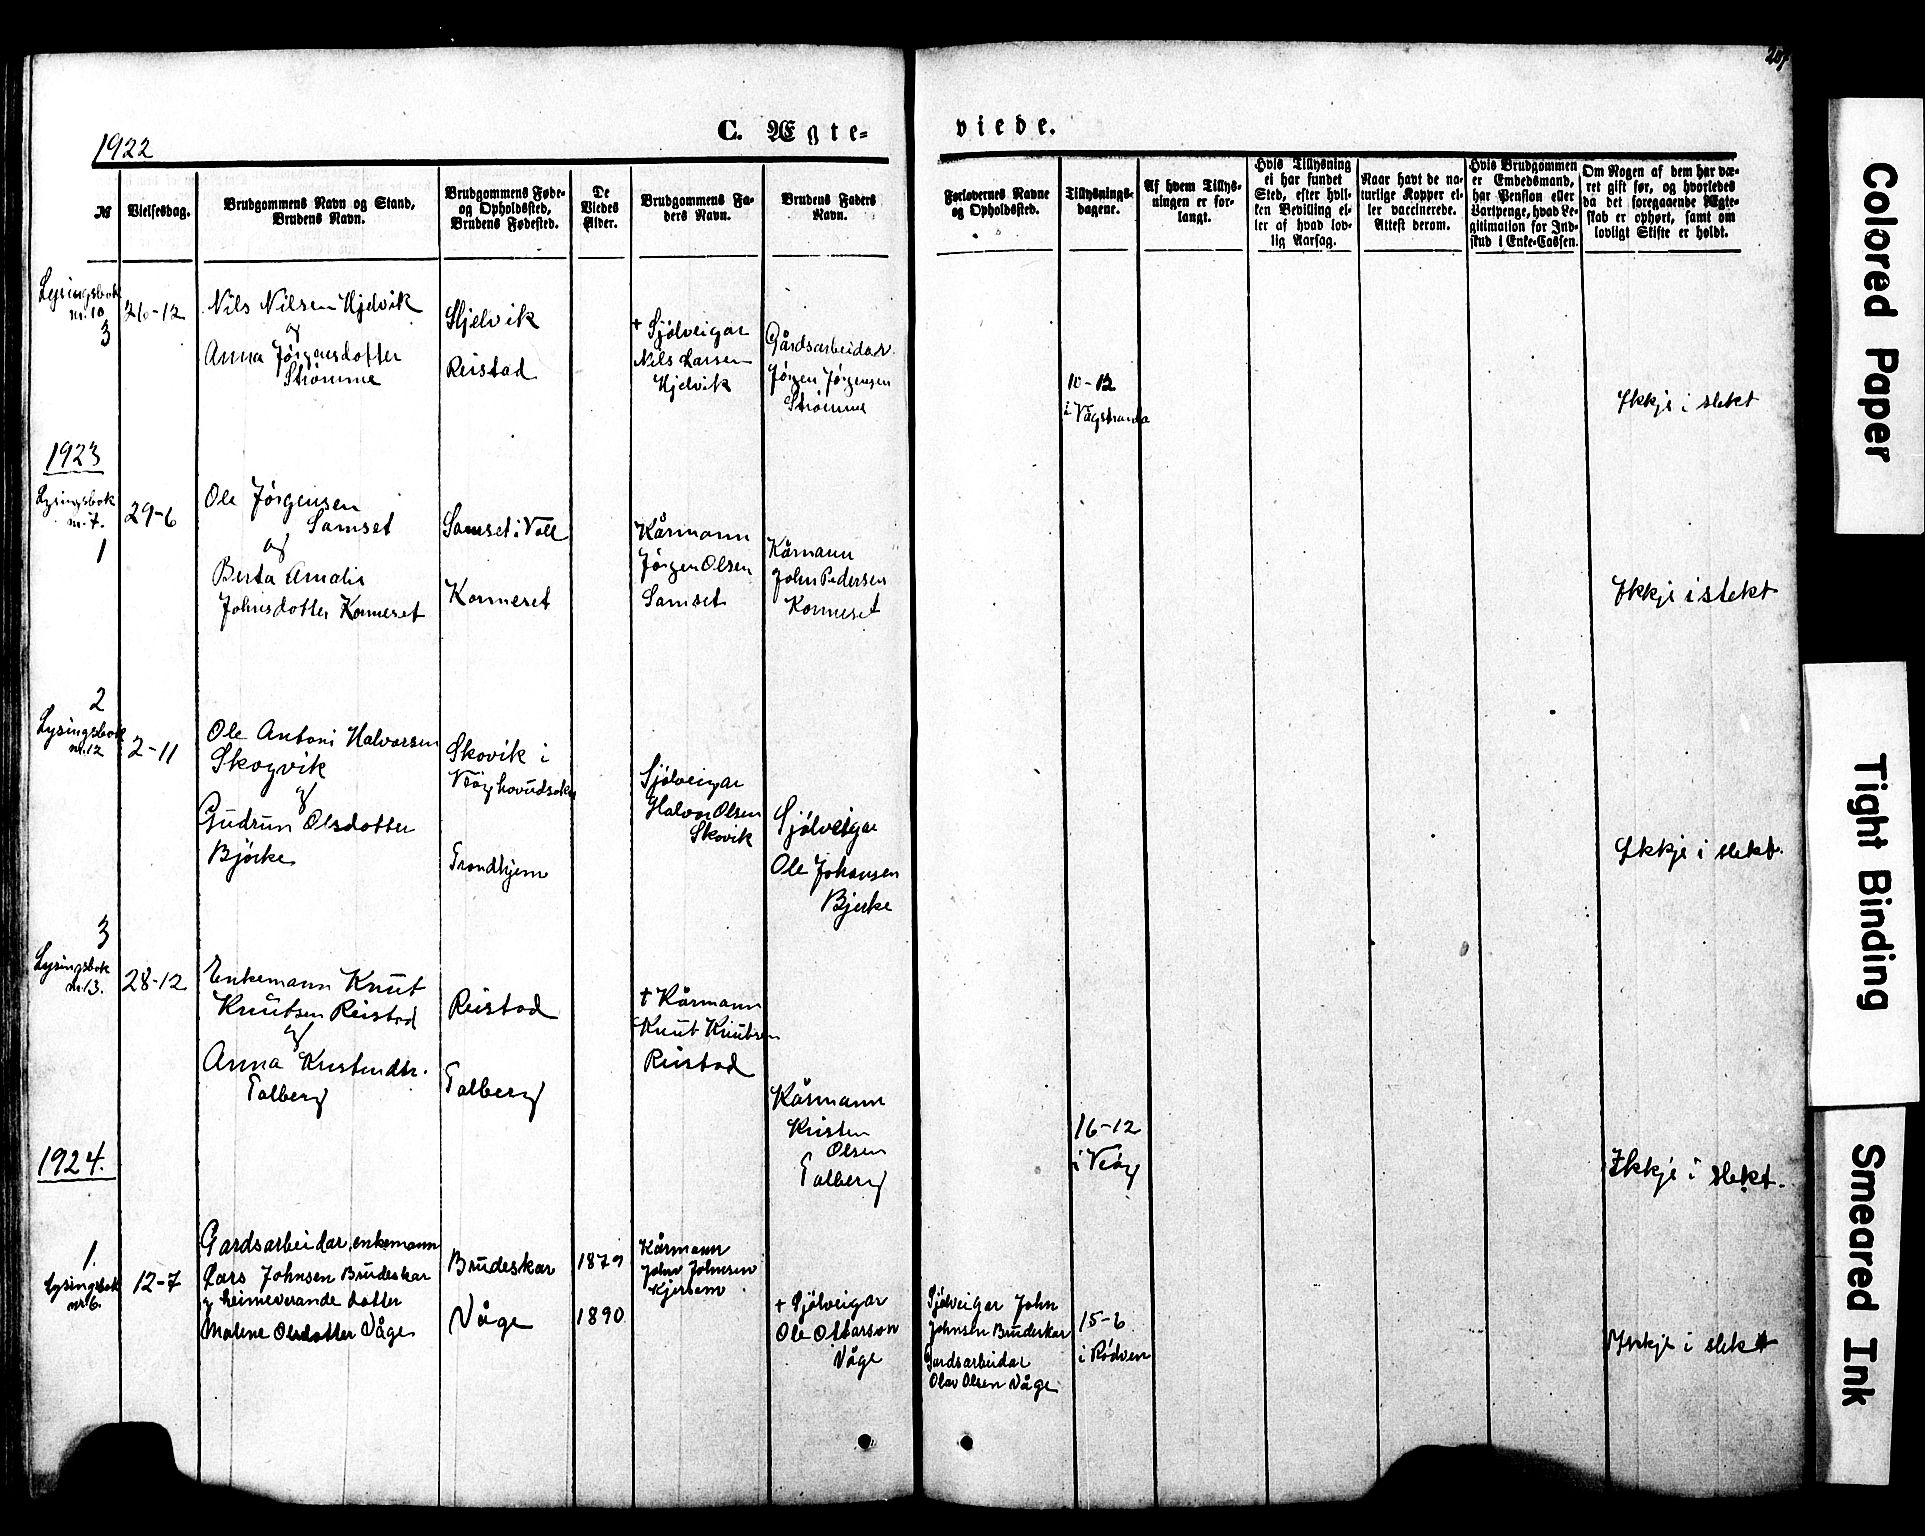 207
C. Ægte=
viede.
1922
№
Vielsesdag.
Brudgommens Navn og Stand,
Brudens Navn.
Brudgommens Føde-
og Opholdssted,
Brudens Fødested.
De
Viedes
Alder.
Brudgommens Fa-
ders Navn.
Brudens Faders
Navn.
Forlovernes Navne
og Opholdssted.
Tillysnings-
dagene.
Af hvem Tillys-
ningen er for-
langt.
Hvis Tillysning
ei har fundet
Sted, efter hvil-
ken Bevilling el-
ler af hvad lov-
lig Aarsag.
Naar havt de na-
turlige Kopper el-
ler vaccinerede.
Attest derom.
Hvis Brudgommen
er Embedsmand,
har Pension eller
Vartpenge, hvad Le-
gitimation for Ind-
skud i Enke-Cassen.
Om Nogen af dem har væ-
ret gift før, og hvorledes
da det foregaaende Ægte-
skab er ophørt, samt om
lovligt Skifte er holdt.
Lysingsbok
nr. 10
3
26-12
Nils Nilsen Hjelvik
og
Anna Jørgensdotter
Strømme
Hjelvik
Reistad
+ Sjølveigar
Nils Larsen
Hjelvik
Gårdsarbeidar
Jørgen Jørgensen
Strømme
10-12
i Vågstranda
Ikkje i slekt
1923
Lysingsbok
nr. 7.
1
29-6
Ole Jørgensen
Samset
og
Berta Amalie
Johnsdotter Kormeset
Samset i Voll
Kormeset
Kårmann
Jørgen Olsen
Samset
Kårmann
John Pedersen
Kormeset
Ikkje i slekt
2
Lysingsbok
nr. 12
2-11
Ole Antoni Halvorsen
Skogvik
og
Gudrun Olsdotter
Bjørke
Skovik i
Veøy hovudsokn
Trondhjem
Sjølveigar
Halvor Olsen
Skovik
Sjølveigar
Ole Johansen
Bjerke
Ikkje i slekt.
3
Lysingsbok
nr. 13.
28-12
Enkemann Knut
Knutsen Reistad
og
Anna Kristendtr.
Talberg
Reistad
Talberg
+ Kårmann
Knut Knutsen
Reistad
Kårmann
Kristen
Olsen
Talberg
16-12
i Veøy
Ikkje i slekt.
1924.
1.
Lysingsbok
nr 6.
12-7
Gardsarbeidar, enkemann
Lars Johnsen Brudeskar
og heimeverande dotter
Malene Olsdotter Våge
Brudeskar
Våge
1879
1890
Kårmann
John Johnsen
Kjersem
+ Sjølveigar
Ole Ottarson
Våge
Sjølveigar John
Johnsen Brudeskar
Gardsarbeidar
Olav Olsen Våge
15-6
i Rødven
Ikkje i slekt
Colored Paper
Tight Binding
Smeared Ink